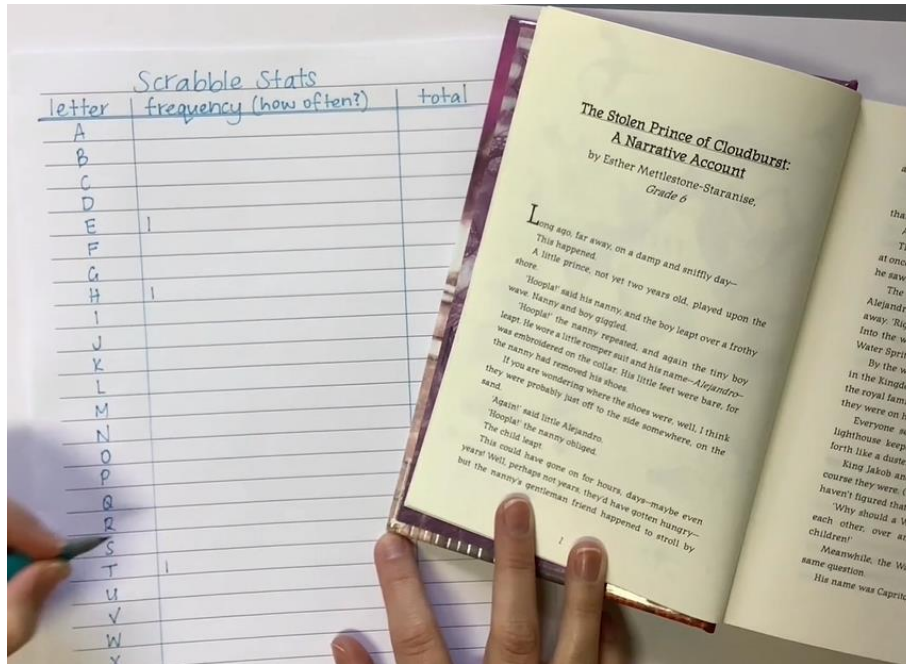 Scrabble Stats
letter frequency (how often?) total
A
B
C
D
E |
F
G
H |
I
J
K
L
M
N
O
P
Q
R
S
T |
U
V
W
The Stolen Prince of Cloudburst:
A Narrative Account
by Esther Mettlestone-Staranise,
Grade 6
Long ago, far away, on a damp and sniffly day—
This happened.
A little prince, not yet two years old, played upon the
shore.
'Hoopla!' said his nanny, and the boy leapt over a frothy
wave. Nanny and boy giggled.
'Hoopla!' the nanny repeated, and again the tiny boy
leapt. He wore a little romper suit and his name—Alejandro—
was embroidered on the collar. His little feet were bare, for
the nanny had removed his shoes.
If you are wondering where the shoes were, well, I think
they were probably just off to the side somewhere, on the
sand.
'Again!' said little Alejandro.
'Hoopla!' the nanny obliged.
The child leapt.
This could have gone on for hours, days—maybe even
years! Well, perhaps not years, they'd have gotten hungry—
but the nanny's gentleman friend happened to stroll by
1
tha
at onc
he saw
The
Alejandr
away. 'Rig
Into the w
Water Sprit
By the w
in the Kingd
the royal fami
they were on h
Everyone se
lighthouse keep
forth like a duste
King Jakob an
course they were. (
haven't figured that
'Why should a W
each other, over an
children!'
Meanwhile, the Wa
same question.
His name was Caprico